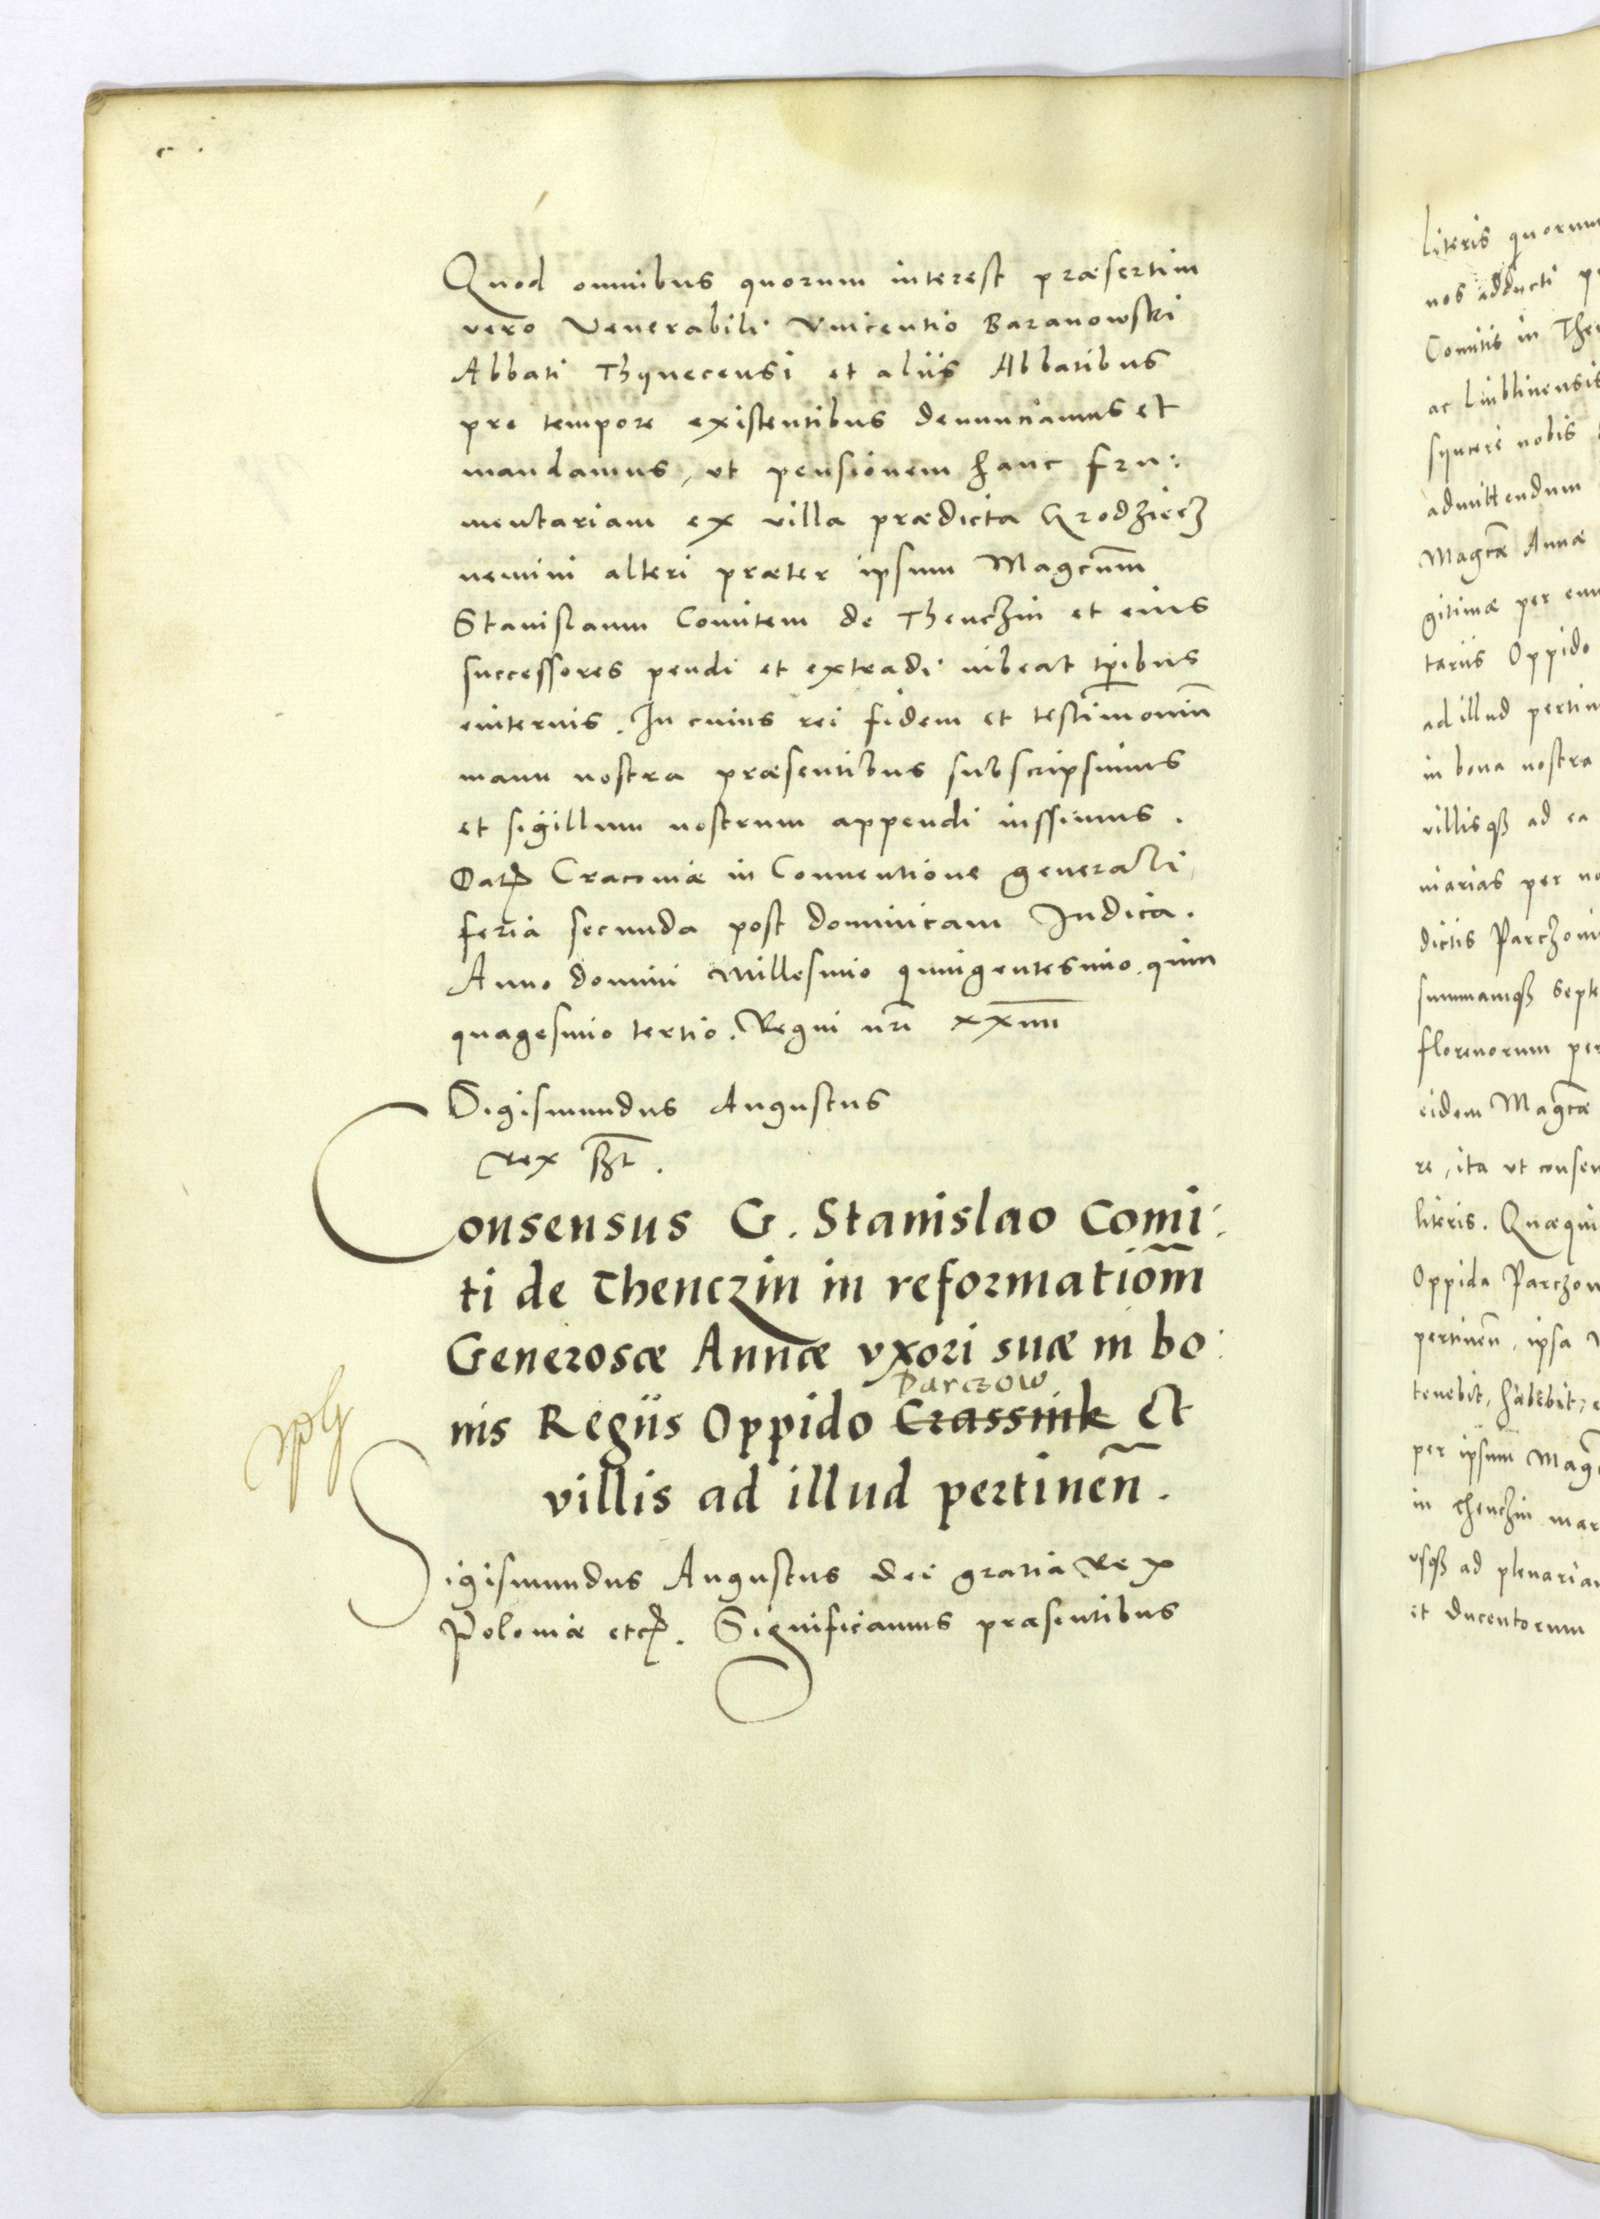 Quod omnibus quorum interest præsertim
vero Venerabili Vincentio Baranowski
Abbati Thynecensi et aliis Abbatibus
pro tempore existentibus denunciamus et
mandamus, ut pensionem hanc fru:
mentariam ex villa prædicta Grodziecz
nemini alteri præter ipsum Magcum
Stanislaum Comitem de Thenczin et eius
successores pendi et extradi iubeat tpribus
eviternis. In cuius rei fidem et testimoniu
manu nostra præsentibus subscripsimus
et sigillum nostrum appendi iussimus.
Dat Cracoviæ in Conventione generali,
feria secunda post dominicam Iudica.
Anno domini Millesimo quingentesimo quin
quagesimo tertio. Regni nri xxiiii
Sigismundus Augustus
Rex sst.
Consensus G. Stanislao Comi:
ti de Thenczin in reformationm
Generosæ Annæ uxori suæ in bo:
Parczow
nis Regiis Oppido Crassnik Et
villis ad illud pertinen.
Sigismundus Augustus Dei gratia Rex
Poloniæ etc. Significamus præsentibus
literis quorum
nos adducti
Comitis in
ac Lublinensis
syncere nobis
admittendum
Magcæ Annæ
gitimæ per eum
tariis Oppido
ad illud pertin
in bona nostra
villisq ad ea
per
dictis Parczow
summamq Septe
florenorum per
eidem Magcæ
re, ita ut consen
literis. Quæqui
Oppida Parczow
pertinen, ipsa
tenebit, habebit,
per ipsum Mag
in Thenczin mar
usq ad plenariam
et ducentorum